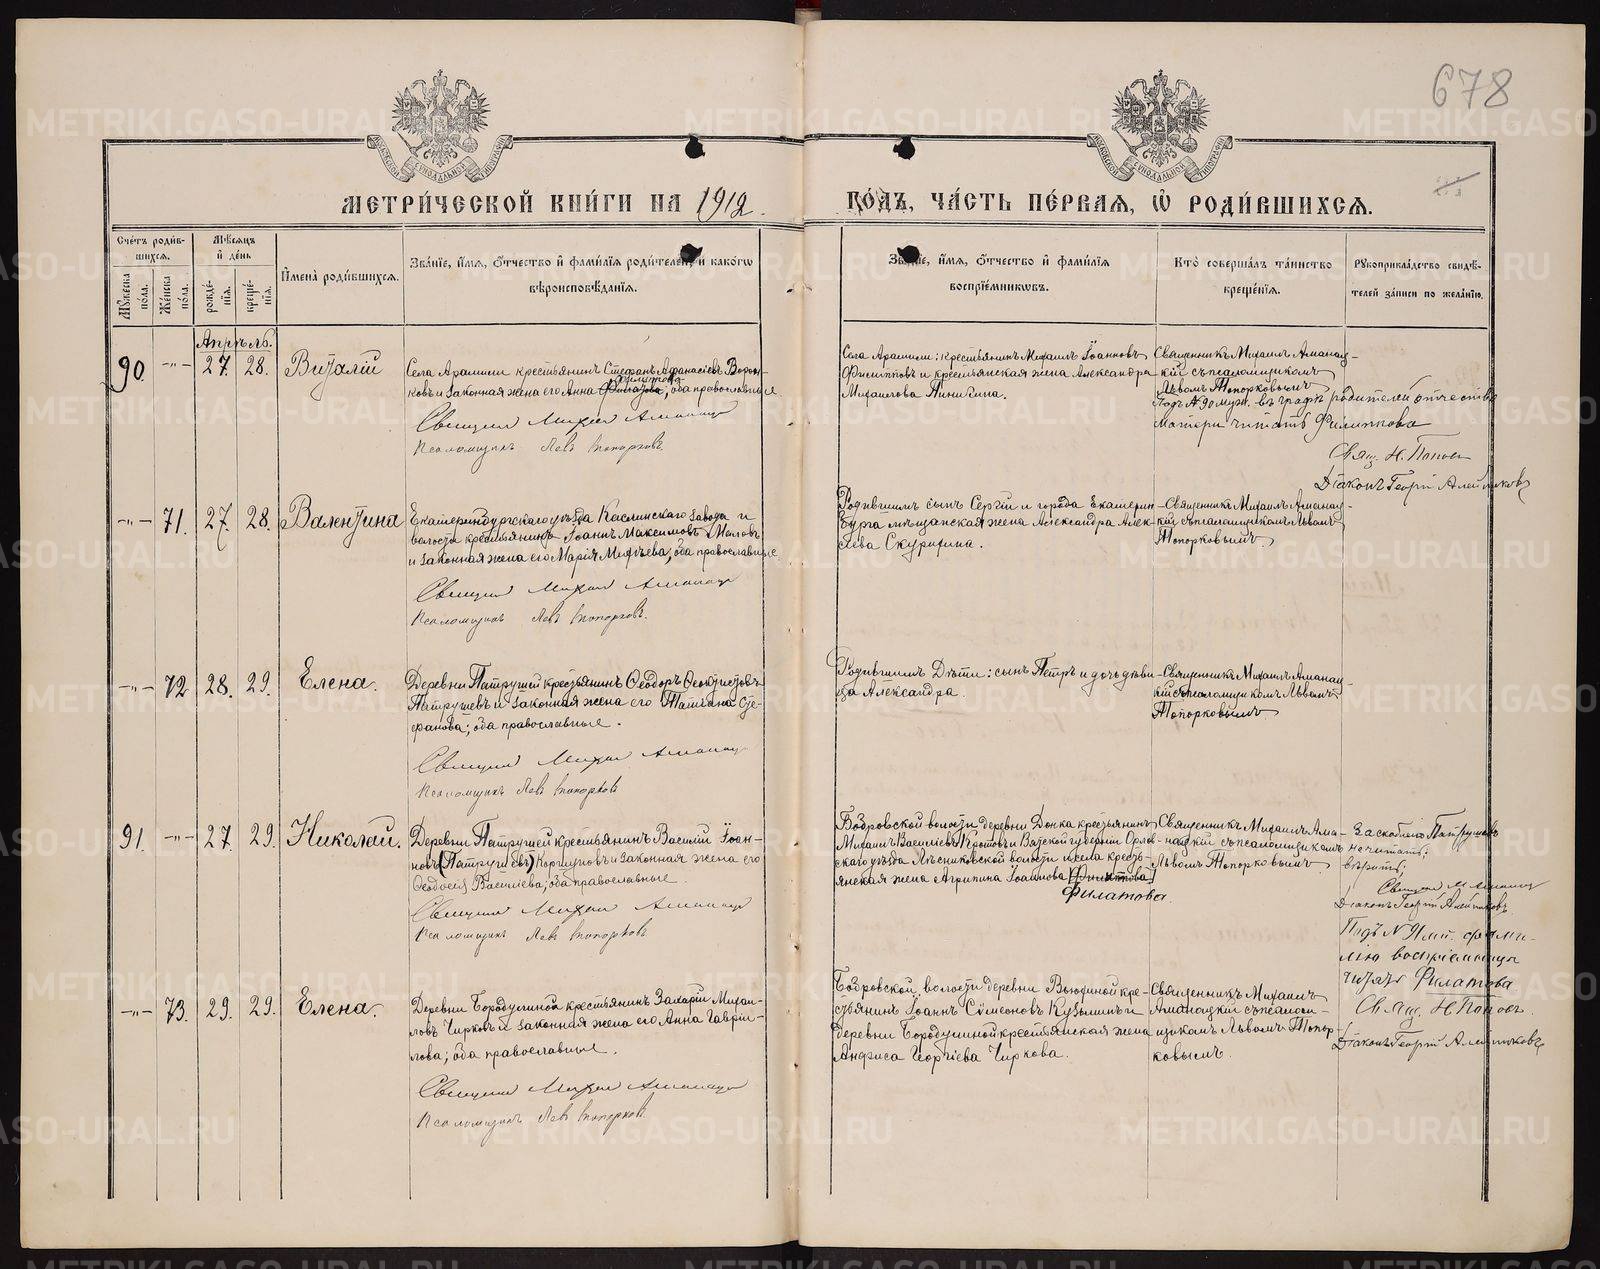 678
МЕТРИ́ЧЕСКОЙ КНИ́ГИ НА 1912
ГО́ДЪ, ЧА́СТЬ ПЕ́РВАЯ, Ѡ РОДИ́ВШИХСЯ.
Сче́тъ роди́в-
шихся.
Му́жеска по́ла.
Же́нска по́ла.
Мѣ́сяцъ
и҆ де́нь
рожде́-
нїя.
креще́-
нїя.
И҆мена̀ роди́вшихся.
Зва́нїе, и҆́мя, ѻ҆́тчество и҆ фами́лїя роди́телей, и҆ како́гѡ
вѣроисповѣ́данїя.
Зва́нїе, и҆́мя, ѻ҆́тчество и҆ фами́лїя
воспрїе́мникѡвъ.
Кто̀ соверша́лъ та́инство
креще́нїя.
Рꙋкоприкла́дство свидѣ́-
телей за́писи по жела́нїю.
Апрѣль.
90. -"- 27. 28. Виталій
Села Арамили крестьянинъ Стефанъ Афанасіевъ Ворон-
ковъ и законная жена его Анна Филиппова; оба православные
Священникъ Михаил Аманацкій
Псаломщикъ Левъ Топорковъ.
Села Арамили: крестьянинъ Михаилъ Іоанновъ
Филипповъ и крестьянская жена Александра
Михаилова
Священникъ Михаилъ Аманац-
кій съ псаломщикомъ
Львомъ Топорковымъ
Подъ № 90 муж. въ графѣ родителей отчество
матери читать Филиппова
Свящ. Н. Поповъ
Діаконъ Георгій
-"- 71. 27. 28. Валентина
Екатеринбургскаго уѣзда Каслинскаго завода и
волости крестьянинъ Іоаннъ Максимовъ
и законная жена его Марія; оба православные
Священникъ Михаил Аманацкій
Псаломщикъ Левъ Топорковъ.
Родившимъ сынъ Сергій и города Екатерин-
бурга мѣщанская жена Александра Алек-
сіева Скурихина.
Священникъ Михаилъ Аманац-
кій съ псаломщикомъ Львомъ
Топорковымъ
-"- 72 28. 29. Елена.
Деревни Патрушей крестьянинъ Ѳеодоръ
Патрушевъ и законная жена его Татіана Сте-
фанова; оба православные.
Священникъ Михаил Аманацкій
Псаломщикъ Левъ Топорковъ
Родившимъ дѣти: сынъ Петръ и дочь дѣви-
ца Александра.
Священникъ Михаилъ Аманац-
кій съ псаломщикомъ Львомъ
Топорковымъ
91. -"- 27. 29. Николай.
Деревни Патрушей крестьянинъ Василій Іоан-
новъ (Патрушевъ) Коршуновъ и законная жена его
Ѳеодосія Васильева; оба православные.
Священникъ Михаил Аманацкій
Псаломщикъ Левъ Топорковъ.
Бобровской волости деревни крестьянинъ
Михаилъ Васильевъ и Вятской губерніи Орлов-
скаго уѣзда волости и села кресть-
янская жена Агрипина Іоаннова [Филиппова]
Филатова.
Священникъ Михаилъ Ама-
нацкій съ псаломщикомъ
Львомъ Топорковымъ
За скобкою Патрушевъ
не читать;
вѣрить;
Священникъ М Аманацкій
Діаконъ Георгій
Подъ № 91 м. фами-
лію воспріемницы
читать Филатова
Свящ. Н Поповъ
Діаконъ Георгій
-"- 73. 29. 29. Елена.
Деревни Бородулиной крестьянинъ Захарій Михаи-
ловъ Чирковъ и законная жена его Анна Гаврии-
лова; оба православные.
Священникъ Михаил Аманацкій
Псаломщикъ Левъ Топорковъ.
Бобровской волости деревни Вьюхиной кре-
стьянинъ Іоаннъ Сѷмеоновъ Кузьминъ и
деревни Бородулиной крестьянская жена
Анфиса Георгіева Чиркова.
Священникъ Михаилъ
Аманацкій съ псалом-
щикомъ Львомъ Топор-
ковымъ.
METRIKI.GASO-URAL.RU